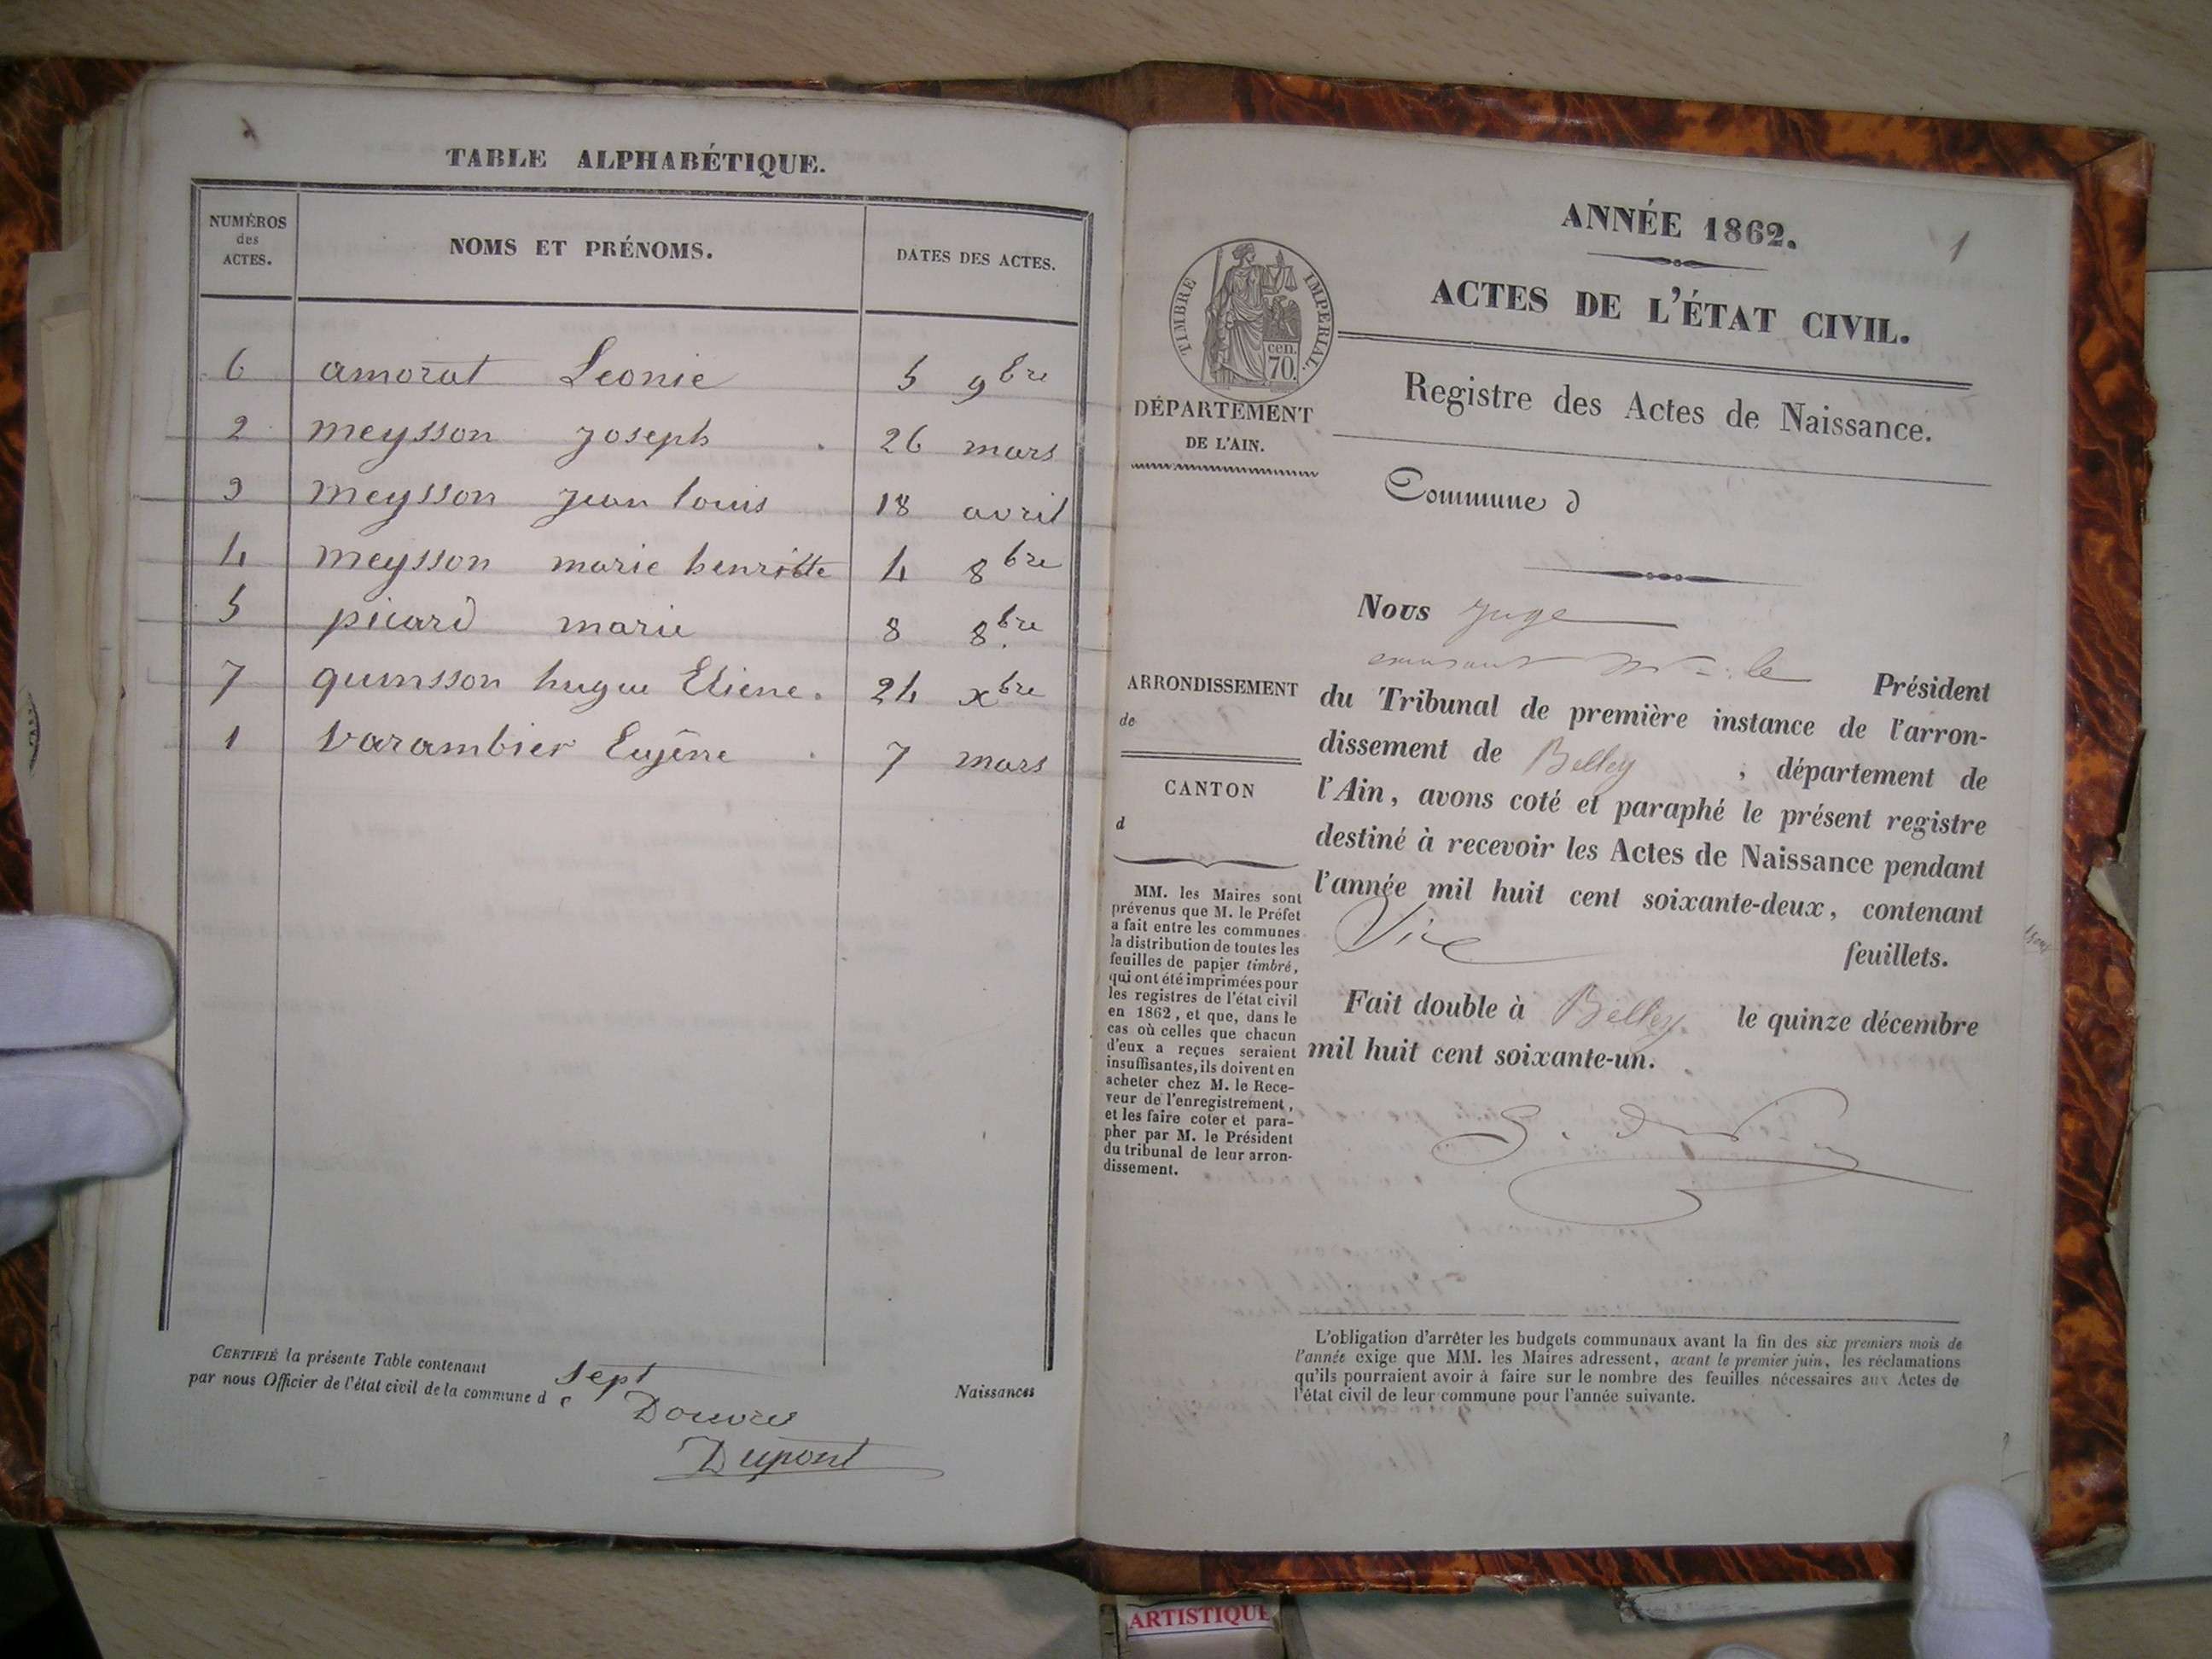 TABLE ALPHABÉTIQUE.
NUMÉROS des ACTES.
NOMS ET PRÉNOMS.
DATES DES ACTES.
6 amorat Leonie 5 9bre
2 meysson Joseph 26 mars
3 meysson Jean louis 18 avril
4 meysson marie henriette 4 8bre
5 picard marie 8 8bre
7 quinsson hugue Etiene. 24 xbre
1 Varambier Eugêne 7 mars
CERTIFIÉ la présente Table contenant sept Naissances
par nous Officier de l'état civil de la commune de Douvres
Dupont
1
ANNÉE 1862.
ACTES DE L'ÉTAT CIVIL.
TIMBRE IMPERIAL.
cen.
70.
DÉPARTEMENT
DE L'AIN.
Registre des Actes de Naissance.
Commune d
Nous Juge
le Président
du Tribunal de première instance de l'arron-
dissement de Belley, département de
l'Ain, avons coté et paraphé le présent registre
destiné à recevoir les Actes de Naissance pendant
l'année mil huit cent soixante-deux, contenant
feuillets.
Fait double à Belley. le quinze décembre
mil huit cent soixante-un.
ARRONDISSEMENT
de
CANTON
d
MM. les Maires sont
prévenus que M. le Préfet
a fait entre les communes
la distribution de toutes les
feuilles de papier timbré,
qui ont été imprimées pour
les registres de l'état civil
en 1862, et que, dans le
cas où celles que chacun
d'eux a reçues seraient
insuffisantes, ils doivent en
acheter chez M. le Rece-
veur de l'enregistrement,
et les faire coter et para-
pher par M. le Président
du tribunal de leur arron-
dissement.
L'obligation d'arrêter les budgets communaux avant la fin des six premiers mois de
l'année exige que MM. les Maires adressent, avant le premier juin, les réclamations
qu'ils pourraient avoir à faire sur le nombre des feuilles nécessaires aux Actes de
l'état civil de leur commune pour l'année suivante.
ARTISTIQUE